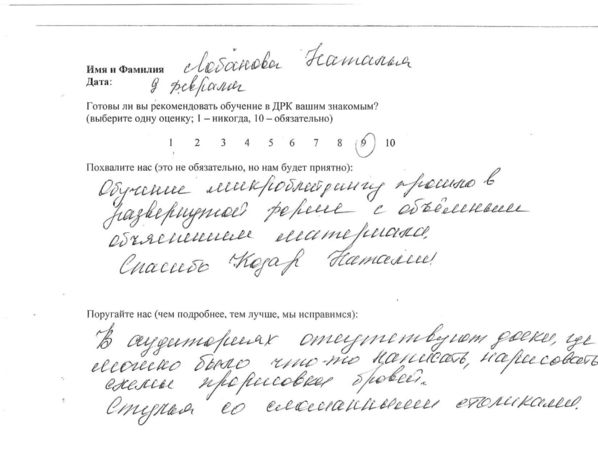 Имя и Фамилия Лобанова Наталья
Дата: 9 февраля
Готовы ли вы рекомендовать обучение в ДРК вашим знакомым?
(выберите одну оценку; 1 – никогда, 10 – обязательно)
1 2 3 4 5 6 7 8 9 10
Похвалите нас (это не обязательно, но нам будет приятно):
Обучение микроблейдингу прошло в
развернутой форме с объёмным
объяснением материала.
Спасибо Козар Наталии!
Поругайте нас (чем подробнее, тем лучше, мы исправимся):
В аудиториях отсутствуют доски, где
можно было что-то написать, нарисовать
схемы прорисовки бровей.
Стулья со сломанными столиками.